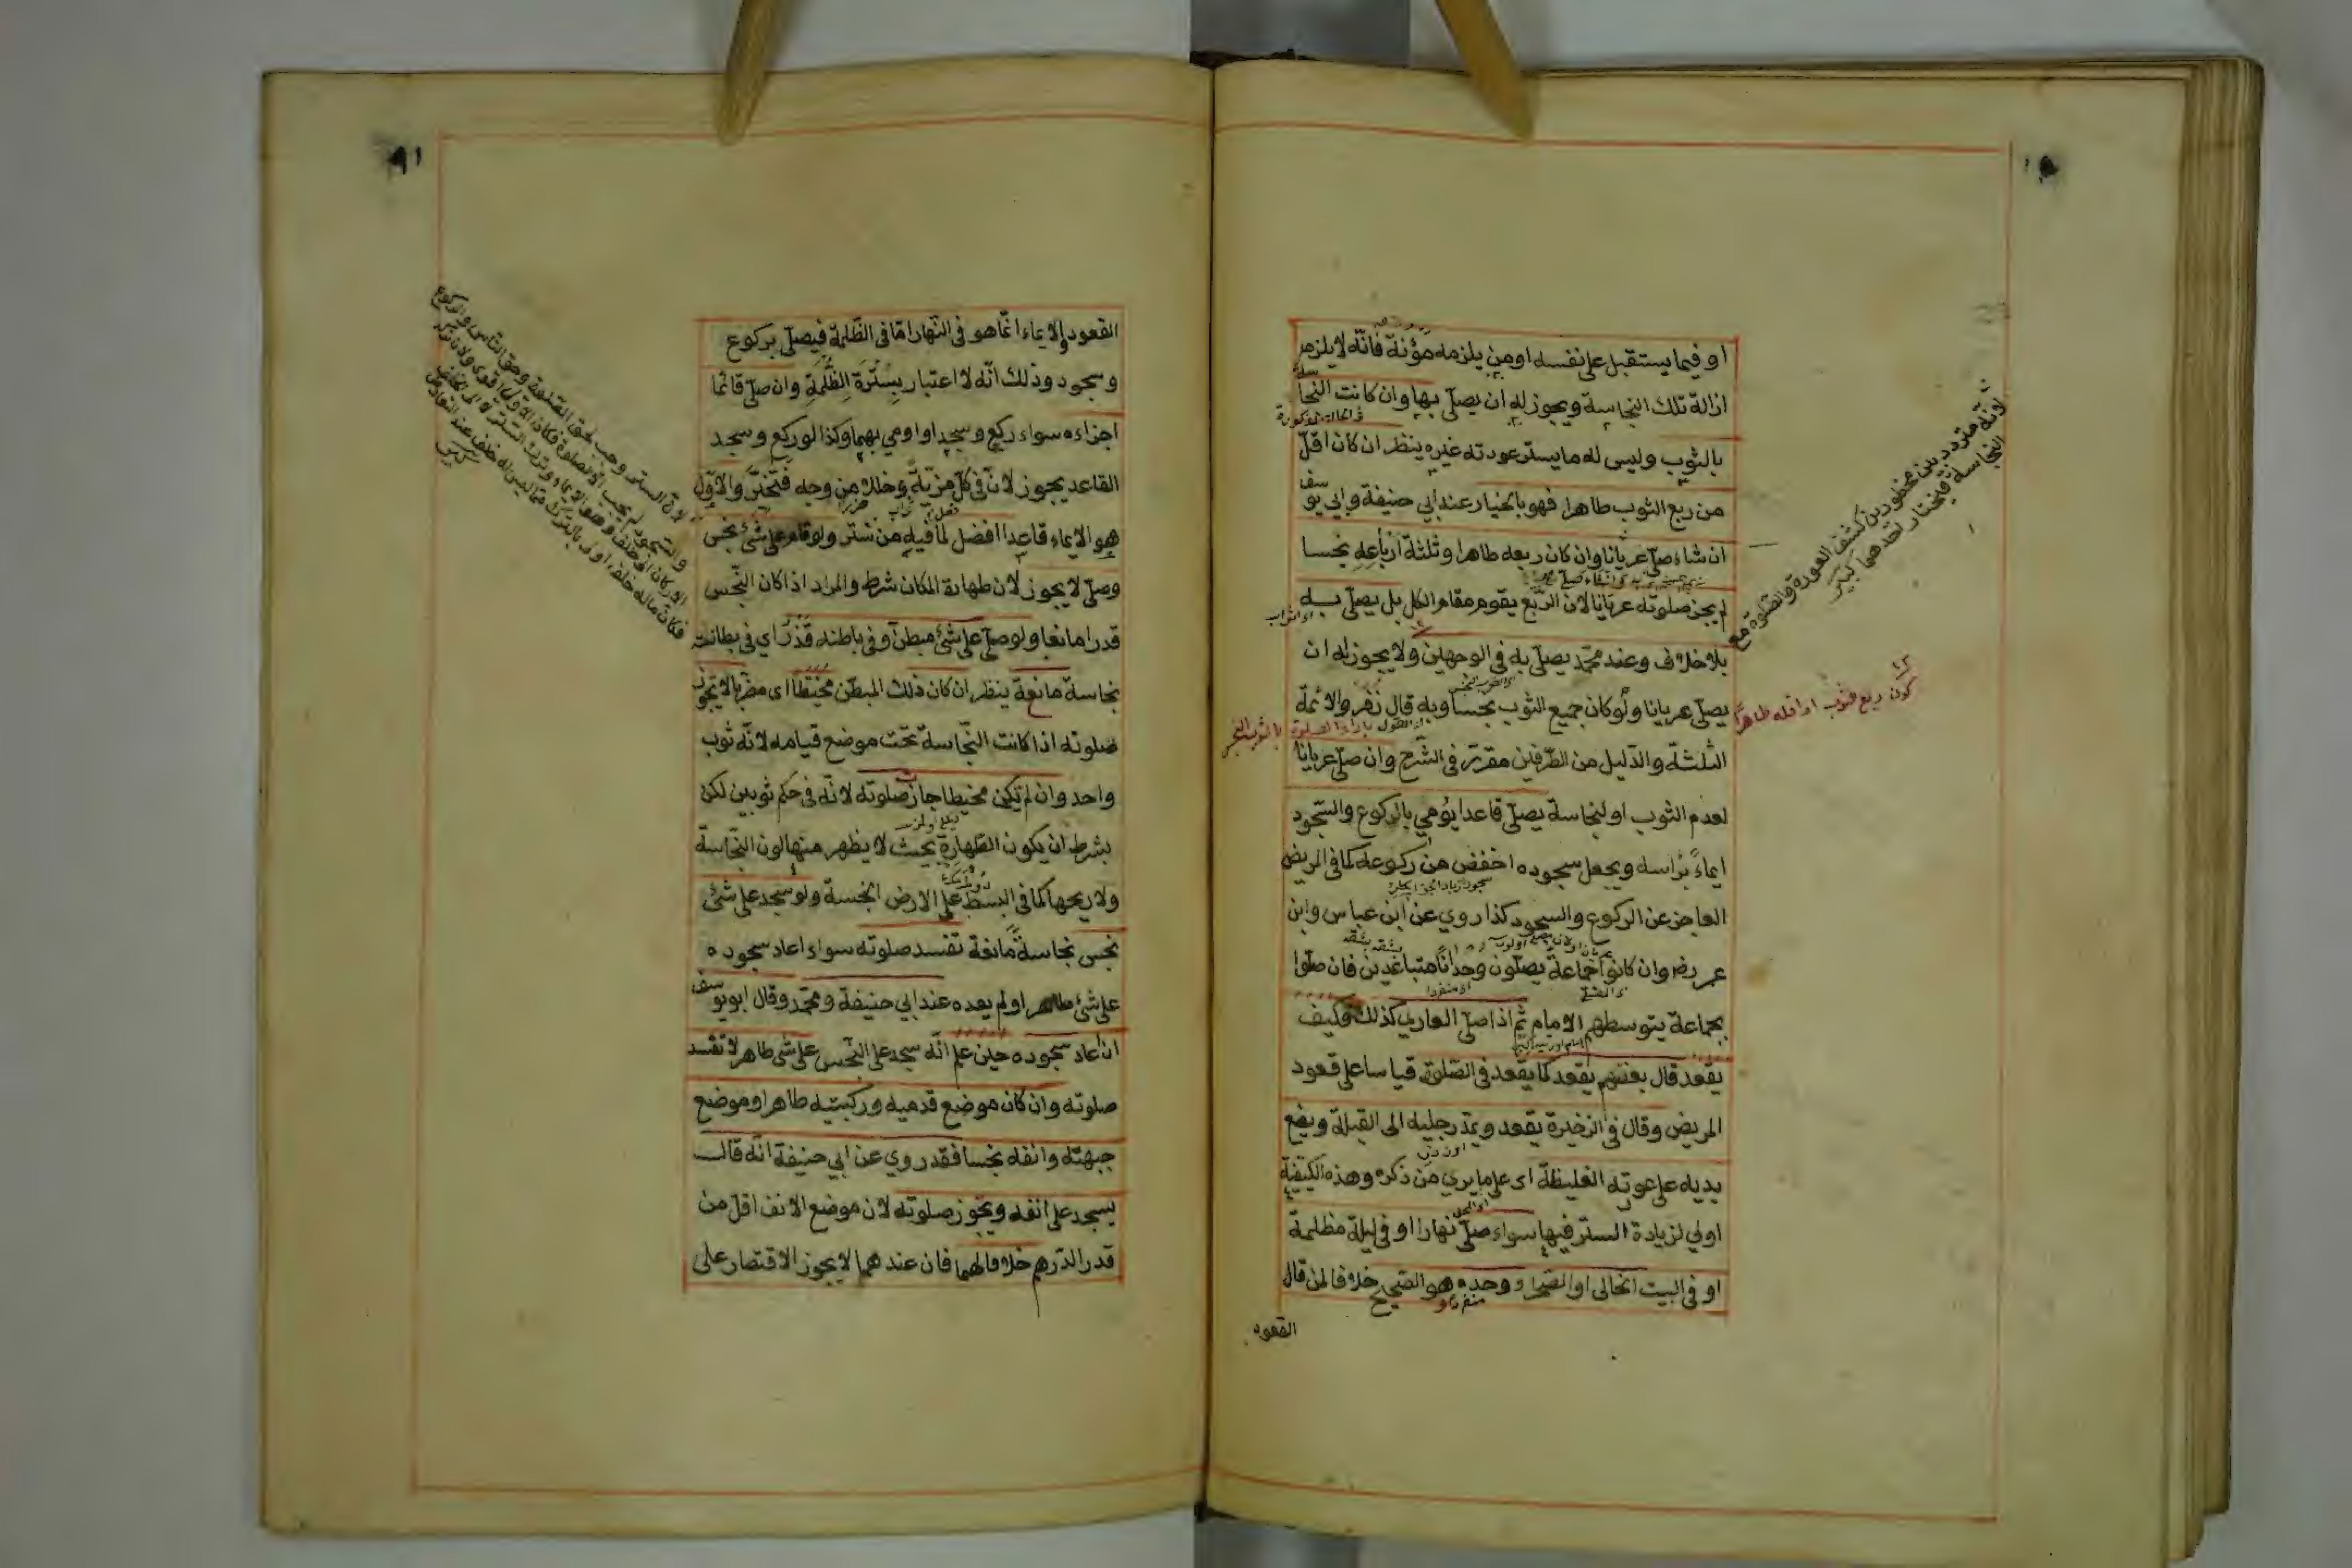 او فيما يستقبل على نفسه او من يلزمه مؤنة فانه لا يلزمه
ازالة تلك النجاسة ويجوز له ان يصلى بها وان كانت النجاسة
فى الحالة المذكورة
بالثوب وليس له ما يستر عورته غيره ينظر ان كان اقلّ
من ربع الثوب طاهرا فهو بالخيار عند ابي حنيفة وابي يوسف
ان شاء صلى عريانا وان كان ربعه طاهرا وثلثة ارباعه نجسا
لم يجز صلوته عريانا لان الربع يقوم مقام الكل بل يصلى به
بلا خلاف وعند محمّد يصلى به في الوجهين ولا يجوز له ان
يصلى عريانا ولو كان جميع الثوب نجسا وبه قال زفر والائمة
الثلثة والدليل من الطرفين مقرّر في الشرح وان صلى عريانا
لعدم الثوب او لنجاسة يصلى قاعدا يؤمي بالركوع والسّجود
ايماءً براسه ويجعل سجوده اخفض من ركوعه كما فى المريض
العاجز عن الركوع والسجود كذا روي عن ابن عباس وابن
عمر رضـ وان كانوا جماعة يصلون وحدانا متباعدين فان صلوا
بجماعة يتوسطهم الامام ثم اذا صلى العاري كذلك وكيف
يقعد قال بعضهم يقعد كما يقعد فى الصّلوة قياسا على قعود
المريض وقال فى الذخيرة يقعد ويمدّ رجليه الى القبلة ويضع
يديه على عورته الغليظة اى على ما يرى من ذكره وهذه الكيفية
اولي لزيادة الستر فيها سواء صلى نهارا او فى ليلة مظلمة
او فى البيت الخالى او الصحراء وحده هو الصّحيح خلافا لمن قال
منفردًا
القعود
لانه متردد بين محظورين كشف العورة والصلوة مع
النجاسة فيختار احدهما كبير
كون ربع ثوب او اقله طاهرًا
٩١
القعود والايماء انما هو فى النهار امّا فى الظلمة فيصلى بركوع
وسجود وذلك انّه لا اعتبار بسترة الظلمة وان صلى قائما
اجزاءه سواء ركع وسجد او اومي بهما وكذا لو ركع وسجد
القاعد يجوز لان فى كلّ مزية وخللا من وجه فتخيّر والاوّل
هو الايماء قاعدا افضل لما فيه من ستر ولو قام على شئ نجس
وصلى لا يجوز لان طهارة المكان شرط والمراد اذا كان النّجس
قدرا مانعا ولو صلى على شئ مبطن وفى باطنه قذر اي فى بطانته
نجاسة مانعة ينظر ان كان ذلك المبطّن مخيّطا اى مضرّبا لا تجوز
صلوته اذا كانت النّجاسة تحت موضع قيامه لانّه ثوب
واحد وان لم يكن مخيطا جاز صلوته لانّه فى حكم ثوبين لكن
بشرط ان يكون الطهارة بحيث لا يظهر منها لون النّجاسة
ولا ريحها كما فى البسط على الارض النجسة ولو سجد على شئ
نجس نجاسة مانعة تفسد صلوته سواء اعاد سجوده
على شئ طاهر او لم يعده عند ابي حنيفة ومحمّد وقال ابو يوسف
ان اعاد سجوده حين علم انّه سجد على النّجس على شئ طاهر لا تفسد
صلوته وان كان موضع قدميه وركبتيه طاهرا وموضع
جبهته وانفه نجسا فقد روي عن ابي حنيفة انّه قال
يسجد على انفه وتجوز صلوته لان موضع الانف اقلّ من
قدر الدّرهم خلافا لهما فان عندهما لا يجوز الاقتصار على
لانّ الستر وجب لحق الصّلوة وحق الناس والركوع